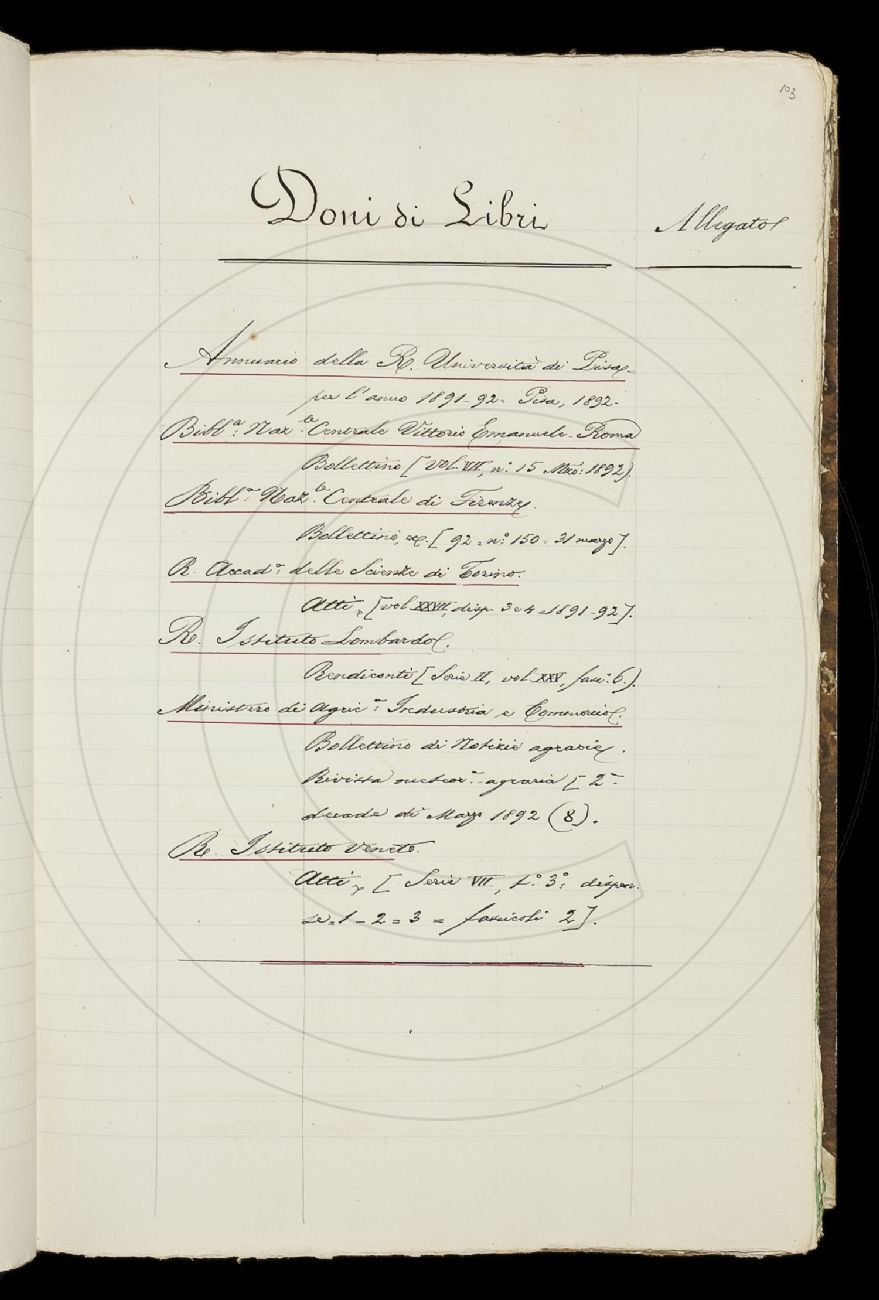 103
Doni di Libri
Allegato
Annuario della R. Università di Pisa
per l'anno 1891-92- Pisa, 1892-
Bibl.ª Naz.le Centrale Vittorio Emanuele-Roma
Bollettino [Vol. VII, n.° 15 Mzo: 1892].
Bibl.ª Naz.le Centrale di Firenze.
Bollettino, ec. [92 = n.° 150 = 31 marzo].
R. Accad.ª delle Scienze di Torino.
Atti, [vol. XXVII, disp. 3 e 4 = 1891-92].
R. Istituto Lombardo.
Rendiconti [Serie II, vol. XXV, fasc.° 6.].
Ministero di Agric.ª Industria e Commercio.
Bollettino di Notizie agrarie.
Rivista meteor.ª - agraria [2ª
decade di Marzo 1892 (8).
R. Istituto Veneto.
Atti, [Serie VII, t.° 3°; dispen-
se = 1 - 2 = 3 = fascicoli 2].